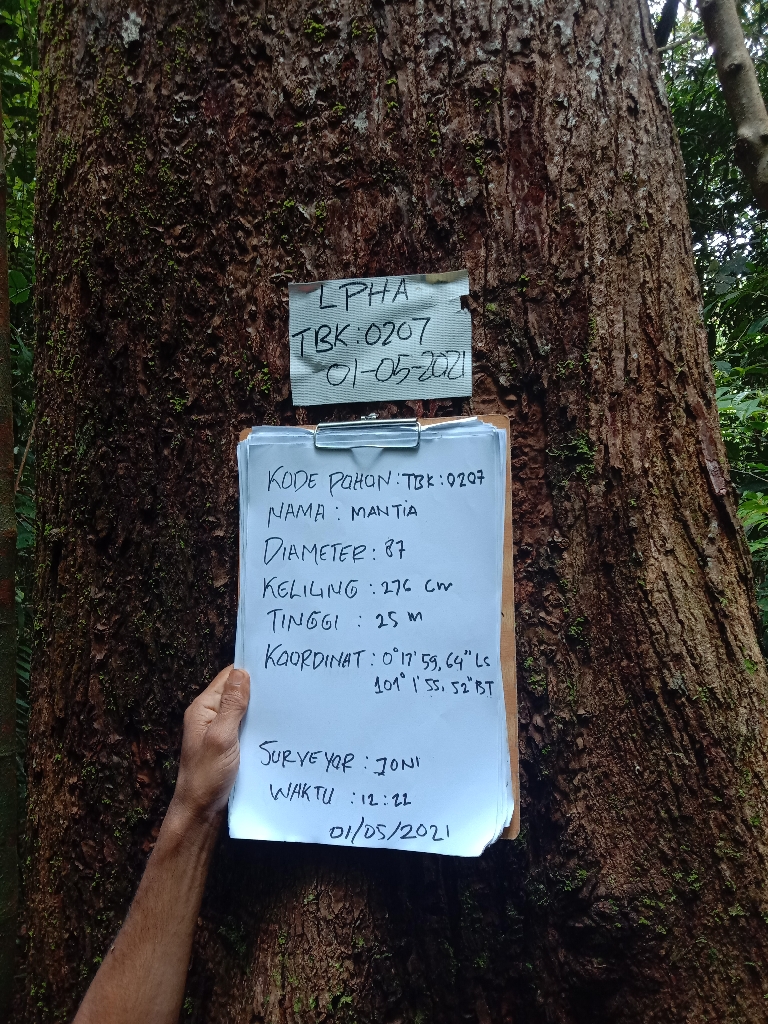 LPHA
TBK:0207
01-05-2021
KODE POHON : TBK:0207
NAMA : MANTIA
DIAMETER : 87
KELILING : 276 Cm
TINGGI : 25 m
KOORDINAT : 0°17'59,64" LS
101° 1'55,52" BT
SURVEYOR : JONI
WAKTU : 12:22
01/05/2021